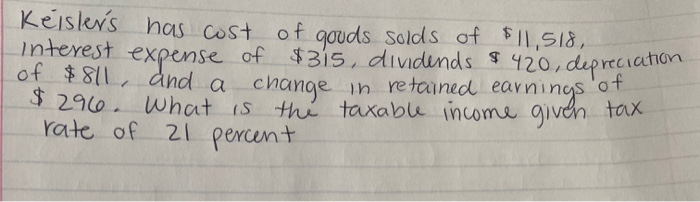 Keisler's has cost of goods solds of $11,518,
interest expense of $315, dividends $420, depreciation
of $811, and a change in retained earnings of
$296. What is the taxable income given tax
rate of 21 percent